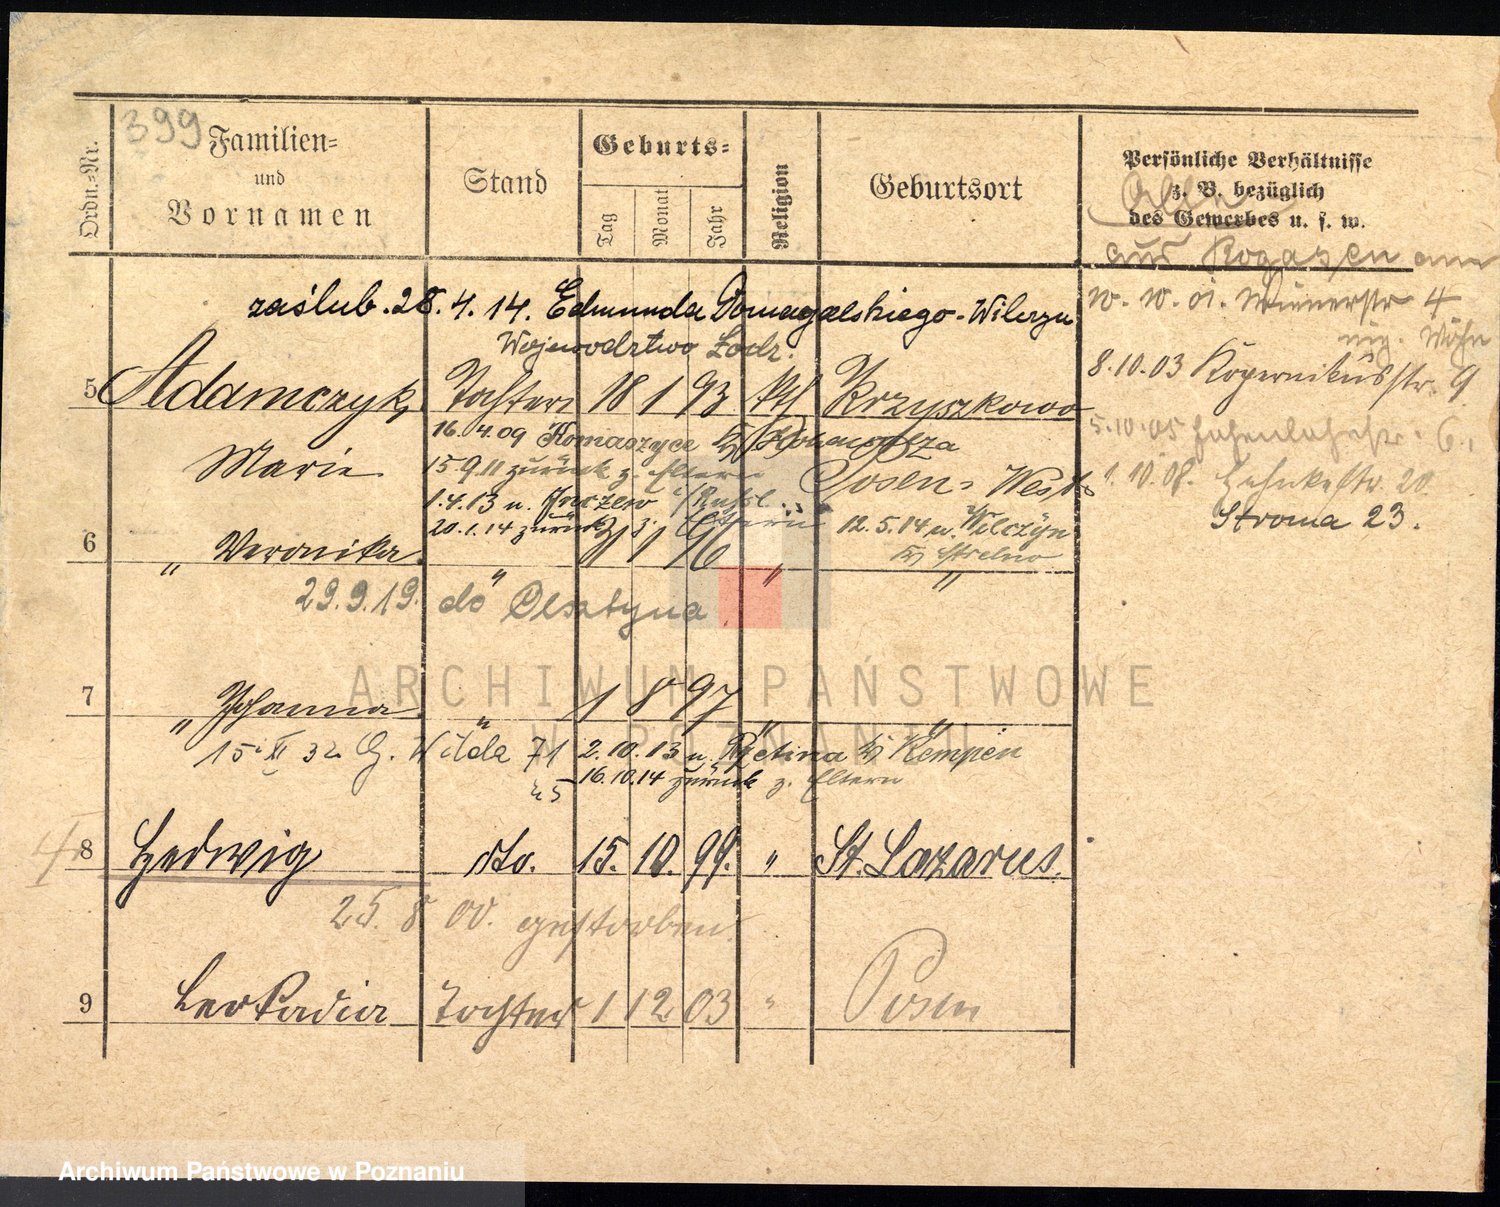 399
Ordn.-Nr.
Familien-
und
Vornamen
Stand
Geburts-
Tag
Monat
Jahr
Religion
Geburtsort
Persönliche Verhältnisse
z. B. bezüglich
des Gewerbes u. s. w.
aus Rogasen am
zaślub. 28.4.14. Edmunda Domagalskiego-Wilczyn
Województwo Łodz.
10.10.01. Wienerstr 4
8.10.03 Kopernikusstr. 9
5 Adamczyk, Tochter 18 1 93 kth Krzyszkowo
16.4.09 Komaszyce
5.10.05
6.
Marie
15.9.11 zurück z. Eltern
Posen-West
1.10.08.
20
1.4.13 n. /Rußl.
Stroma 23.
20.1.14 zurück z. Eltern
12.5.14 n. Wilczyn
6 " Veronika " 3 1 96 " "
Kr Strelno
29.9.19. do Olsztyna
7 " Johanna " 1 8 97 " "
15 XI 32 G. Wilda 71
2.10.13 n. Kr Kempen
16.10.14 zurück z. Eltern
8 Hedwig dto. 15. 10. 99. " St. Lazarus.
25. 8 00. gestorben.
9 Leokadia Tochter 1 12 03 " Posen
ARCHIWUM PAŃSTWOWE
W POZNANIU
Archiwum Państwowe w Poznaniu